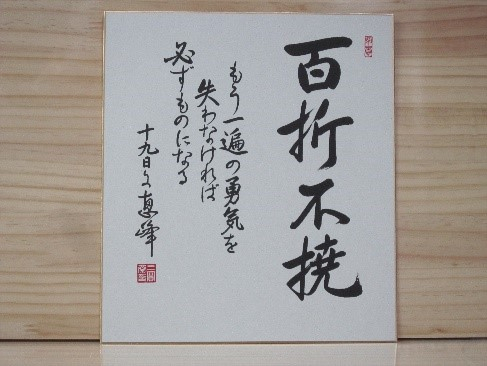 百折不撓
もう一遍の勇気を
失わなければ
必ずものになる
十九日え恵峰